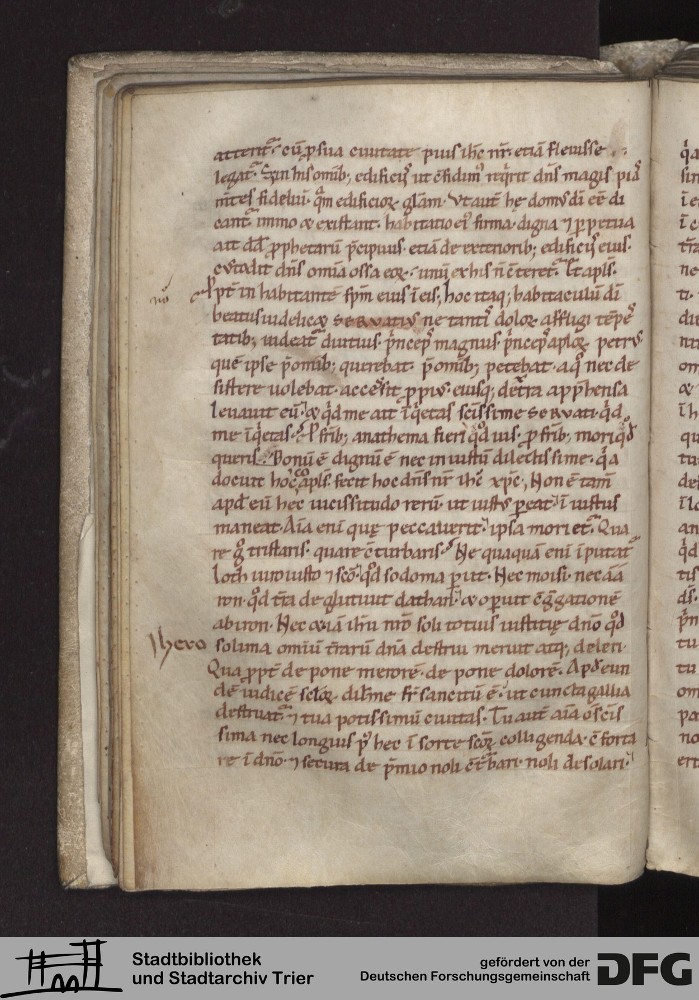 attentꝰ. cū ꝑ sua ciuitate pius ihc nr̄. etiā fleuisse
legat᷑. Sꝫ in his omib; edificiꝰ ut ꝯfidim᷒ reqͥrit dn̄s magis
fideliū. qͣm edificioꝝ glam̄. Vt aut̄ hę domꝰ di eē di
cant᷑ immo & existant. habitatio eiꝰ firma. digna ⁊ ꝑpetua
ait dd̄ ꝓphetarū p̄cipuus. etiā de exteriorib; edificiꝰ eius.
custodit dn̄s omia ossa eoꝝ. unū ex his n̄ ꝯteret᷑. Et apl̄s.
ꝓpt̄ inhabitantē spm̄ eius i eis, hoc itaq; habitaculū di
beatus uidelicꝫ seruatius ne tanti dolor affligi
tatib; uideat᷑ diutius. p̄nceps magnus. p̄nceps aploꝝ petrꝰ
quē ipse p̄ omib; querebat. p̄ omib; petebat. a qͦ nec de
sistere uolebat. accessit ꝓpiꝰ. eiusq; dext̄ra app̄hensa
leuauit eū. & qͥd me ait iqͥetas scissime seruati. qͥd
me iqͥetas. ꝑ frīb; anathema fieri qͥd uis. ꝓ frīb; mori qͥd
queris. Bonū ē dignū ē nec iniustū dilectissime. qͣa
docuit hoc apl̄s. fecit hoc dn̄s nr̄ ihc xp̄c, Non ē tam̄
apd̓ eū hec uicissitudo rerū. ut iustꝰ ꝑeat. iniustus
maneat. Aīa eni quę peccauerit. ipsa moriet᷑. Qua
re gͦ tristaris. quare ꝯturbaris. Nequaquā eni iputat᷑
loth uiro iusto ⁊ scō. qͦd sodoma ꝑiit. Nec moisi. nec aā
ron. qͦd t̄ra deglutiuit dathan. & opuit ꝯg̓gationē
abiron. Nec & iā ihu nr̄o soli totius iustitię dn̄o qͦd
Ihero solima omiū t̄rarū dn̄a destrui meruit atq; deleri.
Qua ꝓpt̄ depone merorē. depone dolorē. Apd̓ eun
dē iudicē scloꝝ. dil̄me fr̄ sancitū ē. ut cuncta gallia
destruat᷑. ⁊ tua potissimū ciuitas. Tu aut̄ aīa
sima nec longius pꝰ hec i sorte scoꝝ colligenda. ꝯforta
re i dn̄o. ⁊ secura de p̄mio noli ꝯt̄bari. noli desolari.
Stadtbibliothek
und Stadtarchiv Trier
gefördert von der
Deutschen Forschungsgemeinschaft
DFG